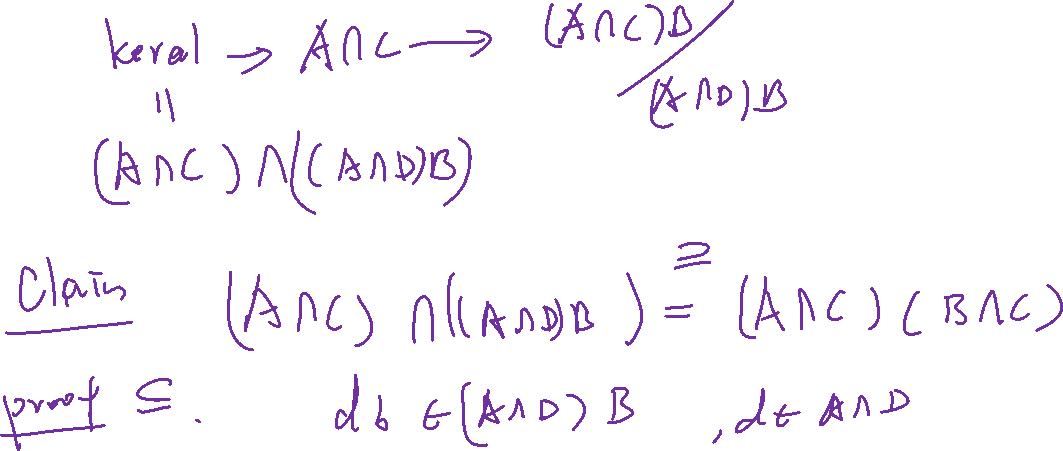 keral → A∩C → (A∩C)B / (A∩D)B
=
(A∩C) ∩ ((A∩D)B)
Claim (A∩C) ∩ ((A∩D)B) = (A∩C)(B∩C)
⊇
proof ⊆. db ∈ (A∩D)B, d ∈ A∩D